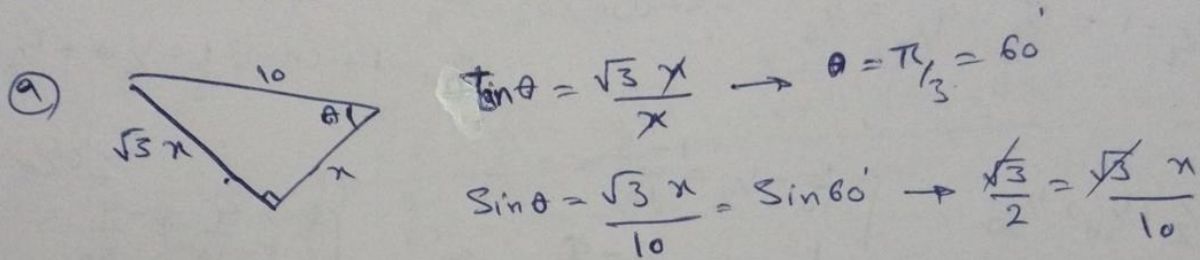 a)
10
θ
√3 x
x
tan θ = √3 x / x → θ = π/3 = 60°
Sin θ = √3 x / 10 = Sin 60° → √3 / 2 = √3 x / 10